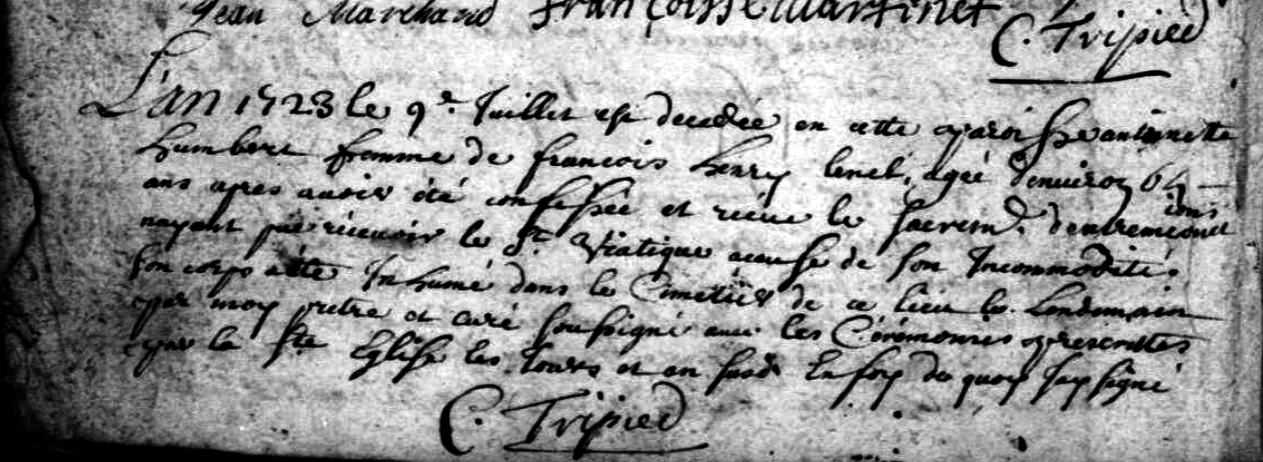 Jean Marchand françoisse Martinet
C. Tripied
L'an 1723 le 9e Juillet est decedée en cette paroisse antoinette
humbert femme de francois henry agée d'environ 64
ans apres avoir été confessée et recue le sacremt. d'extremeonct
ions
nayant pue récevoir le St. Viatique acause de son Incommodité,
son corps a été Inhumé dans le Cimetiere de ce lieu le Lendemain
par moy pretre et curé soussigné avec les Cérémonies prescrittes
par la Ste Eglise les jours et an susd. En foy de quoy Jay signé
C. Tripied